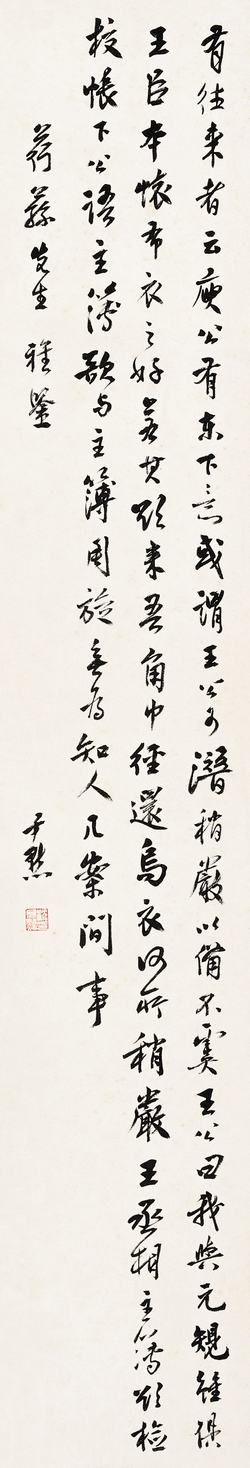 有往来者云庾公有東下意或謂王公可潛稍嚴以備不虞王公曰我與元規雖俱
王臣本懷布衣之好若其欲来吾角巾徑還烏衣何所稍嚴王丞相主簿欲檢
校帳下公語主簿欲与主簿周旋無為知人几案間事
先生雅鑒
尹默